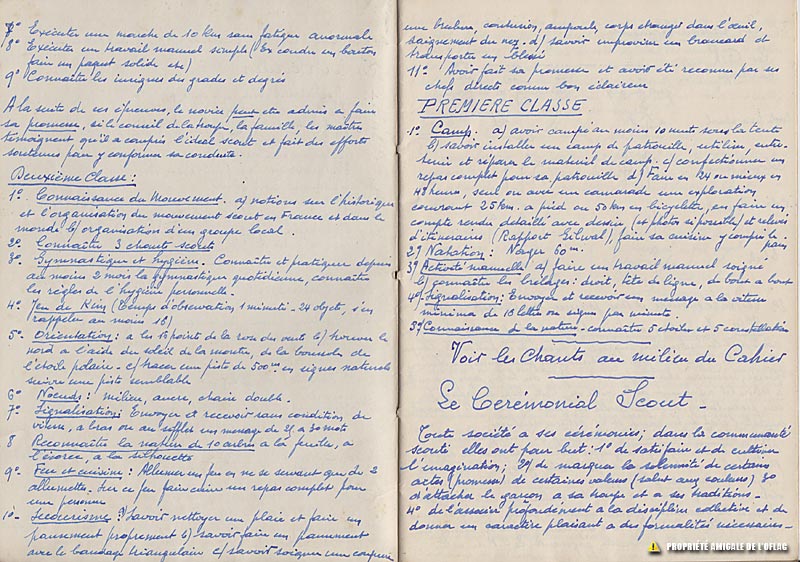 7° Exécuter une marche de 10 Km sans fatigue anormale
8° Exécuter un travail manuel simple (Ex coudre un bouton
faire un paquet solide etc)
9° Connaître les insignes des grades et degrés
A la suite de ces épreuves, le novice peut etre admis a faire
sa promesse, si le conseil de la troupe, la famille, les maîtres
témoignent qu'il a compris l'idéal scout et fait des efforts
soutenus pour y conformer sa conduite.
Deuxième Classe :
1° Connaissance du Mouvement. a) notions sur l'historique
et l'organisation du mouvement scout en France et dans le
monde b) organisation d'un groupe local.
2° Connaître 3 chants scouts
3° Gymnastique et hygiène. Connaître et pratiquer depuis
au moins 2 mois la gymnastique quotidienne, connaître
les règles de l'hygiène personnelle.
4° Jeu de Kim (Temps d'observation 1 minute - 24 objets, s'en
rappeler au moins 16)
5° Orientation : a les 16 points de la rose des vents b) trouver le
nord a l'aide du soleil de la montre, de la boussole de
l'étoile polaire - c) tracer une piste de 500m en signes naturels
suivre une piste semblable
6° Noeuds : milieu, ancre, chaise double.
7° Signalisation : Envoyer et recevoir sans condition de
vitesse, a bras ou au sifflet un message de 25 a 30 mots
8 Reconnaître la nature de 10 arbres a la feuille, a
l'écorce, a la silhouette
9° Feu et cuisine : Allumer un feu en ne se servant que de 2
allumettes. Sur ce feu faire cuire un repas complet pour
une personne
10° Secourisme : Savoir nettoyer un plaie et faire un
pansement proprement b) savoir faire un pansement
avec le bandage triangulaire c) savoir soigner une coupure
une brulure, contusion, ampoule, corps etranger dans l'oeuil,
saignement du nez. d) savoir improviser un brancard et
transporter un blessé
11° Avoir fait sa promesse et avoir été reconnu par ses
chefs directs comme bon éclaireur
PREMIERE CLASSE
1° Camp : a) avoir campé au moins 10 nuits sous la tente
b) savoir installer un camp de patrouille, utiliser, entre-
tenir et réparer le matériel de camp. c) confectionner un
repas complet pour sa patrouille d) Faire en 24 ou mieux en
48 heures, seul ou avec un camarade une exploration
couvrant 25km. a pied ou 50 km en bicyclette, en faire un
compte rendu detaillé avec dessin (et photos si possible) et relevés
d'itineraires (Rapport ), faire sa cuisine y compris le pain
2°) Natation : Nager 60m.
3°) Activité manuelle a) faire un travail manuel soigné
b) connaître les brelages : droit, tête de ligne, de bout a bout
4°) Signalisation : Envoyer et recevoir un message a la vitesse
minima de 18 lettres ou signes par minute.
5°) Connaissance de la nature - connaître 5 étoiles et 5 constellations
Voir les Chants au milieu du Cahier
Le Cerémonial Scout -
Toute société a ses cérémonies ; dans la communauté
scoute elles ont pour but : 1° de satisfaire et de cultiver
l'imagination ; 2°) de marquer la solennité de certains
actes (promesse) de certaines valeurs (salut aux couleurs) 3°
d'attacher le garçon a sa troupe et a ses traditions -
4° de l'associer profondément a la discipline collective et de
donner un caractère plaisant a des formalités nécessaires -
PROPRIÉTÉ AMICALE DE L'OFLAG